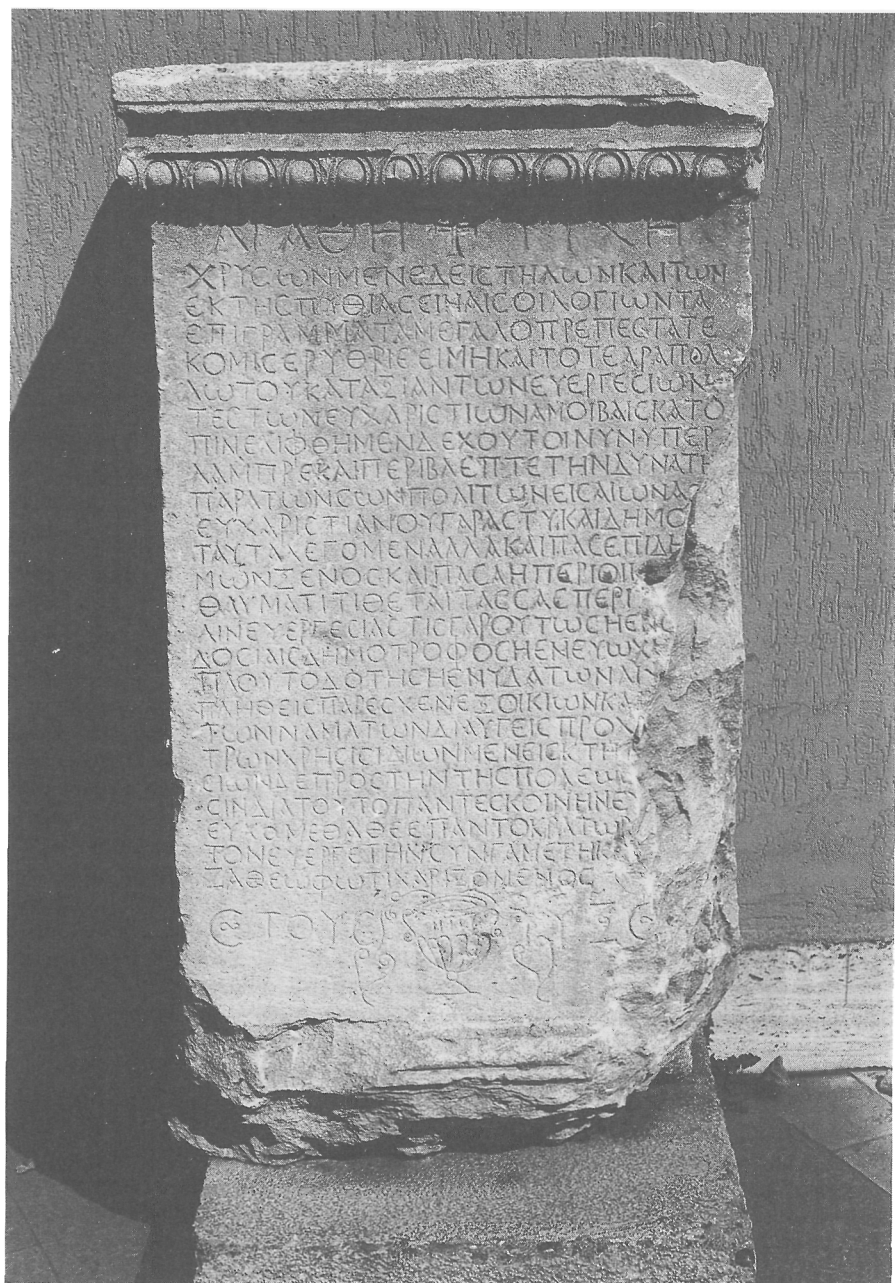 ΑΓΑΘΗ ΤΥΧΗ
ΧΡΥCΙωΝΜΕΝΕΔΕΙCΤΗΛωΝΚΑΙΤωΝ
ΕΚΤΗCΠΥΘΙΑCΕΙΝΑΙCΟΙΛΟΓΙωΝΤΑ
ΕΠΙΓΡΑΜΜΑΤΑΜΕΓΑΛΟΠΡΕΠΕCΤΑΤΕ
ΚΟΜΙCΕΡΥΘΡΙΕΕΙΜΗΚΑΙΤΟΤΕΑΡΑΠΟΛ
ΛωΤΟΥΚΑΤΑΞΙΑΝΤωΝΕΥΕΡΓΕCΙωΝ
ΤΕCΤωΝΕΥΧΑΡΙCΤΙωΝΑΜΟΙΒΑΙCΚΑΤΟ
ΠΙΝΕΛΙΦΘΗΜΕΝΔΕΧΟΥΤΟΙΝΥΝΥΠΕΡ
ΛΑΜΠΡΕΚΑΙΠΕΡΙΒΛΕΠΤΕΤΗΝΔΥΝΑΤΗ
ΠΑΡΑΤωΝCωΝΠΟΛΙΤωΝΕΙCΑΙωΝΑC
ΕΥΧΑΡΙCΤΙΑΝΟΥΓΑΡΑCΤΥΚΑΙΔΗΜΟ
ΤΑΥΤΑΛΕΓΟΜΕΝΑΛΛΑΚΑΙΠΑCΕΠΙΔΗ
ΜωΝΞΕΝΟCΚΑΙΠΑCΑΗΠΕΡΙΟΙΚ
ΘΑΥΜΑΤΙΤΙΘΕΤΑΙΤΑCCΑCΠΕΡΙ
ΛΙΝΕΥΕΡΓΕCΙΑCΤΙCΓΑΡΟΥΤωCΗΕΝ
ΔΟCΙΜCΔΗΜΟΤΡΟΦΟCΗΕΝΕΥωΧ
ΠΛΟΥΤΟΔΟΤΗCΗΕΝΥΔΑΤωΝΛΙ
ΠΛΗΘΕΙCΠΑΡΕCΧΕΝΕΞΟΙΚΙωΝΚΑ
ΤωΝΝΑΜΑΤωΝΔΙΑΥΓΕΙCΠΡΟΧ
ΤΡωΝΧΡΗCΙCΙΔΙωΝΜΕΝΕΙCΚΤΗ
CΙωΝΔΕΠΡΟCΤΗΝΤΗCΠΟΛΕω
CΙΝΔΙΑΤΟΥΤΟΠΑΝΤΕCΚΟΙΝΗΝΕ
ΕΥΧΟΜΕΘΑΘΕΕΠΑΝΤΟΚΡΑΤωΡ
ΤΟΝΕΥΕΡΓΕΤΗΝCΥΝΓΑΜΕΤΗΚ
ΖΑΘΕωΦωΤΙΧΑΡΙΖΟΝΕΝΟC
ΕΤΟΥC